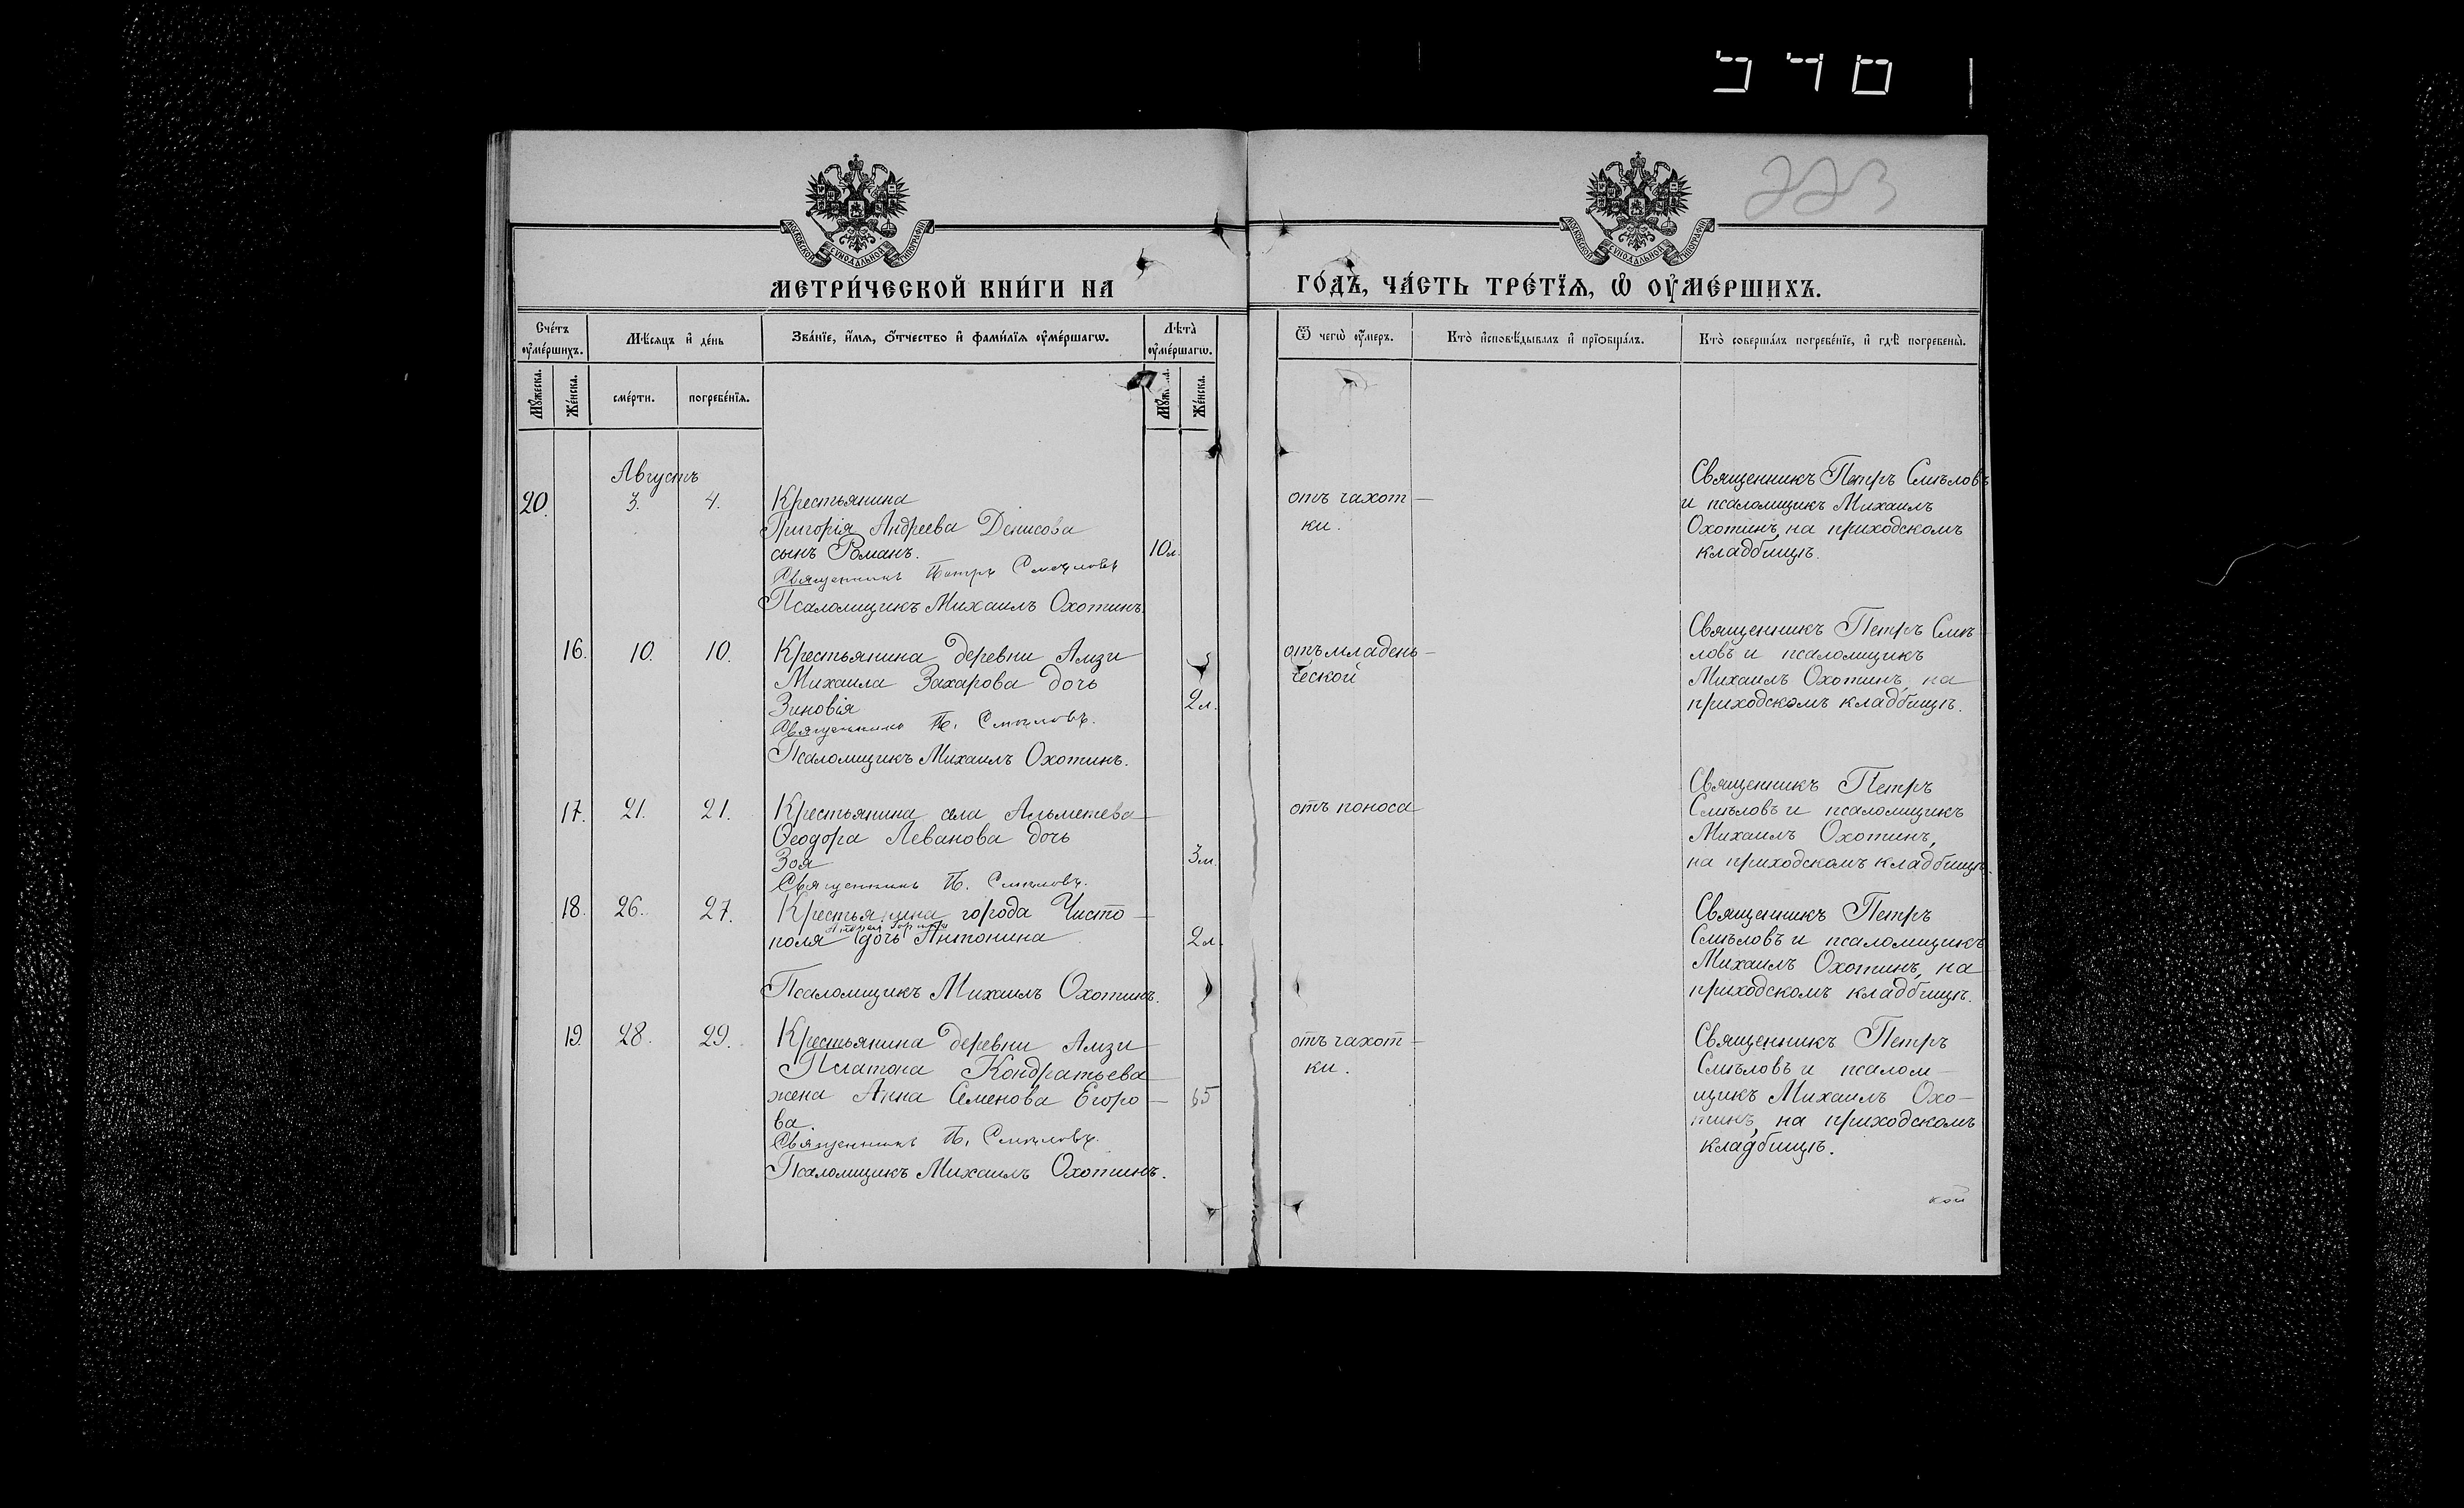 223
МОСКОВСКОЙ СѴНОДАЛЬНОЙ ТИПОГРАФІИ
МОСКОВСКОЙ СѴНОДАЛЬНОЙ ТИПОГРАФІИ
МЕТРИ́ЧЕСКОЙ КНИ́ГИ НА
ГО́ДЪ, ЧА́СТЬ ТРЕ́ТЇѦ, Ѽ ОУ҆МЕ́РШИХЪ.
Сче́тъ оу҆ме́ршихъ.
Мѣ́сѧцъ и҆ де́нь
Зва́нїе, и҆́мѧ, ѻ҆́тчество и҆ фами́лїѧ оу҆ме́ршагѡ.
Лѣ́та оу҆ме́ршагѡ.
Ѿ чегѡ̀ оу҆́меръ.
Кто̀ и҆сповѣ́дывалъ и҆ прїѡбща́лъ.
Кто̀ соверша́лъ погребе́нїе, и҆ гдѣ̀ погребены̀.
Мꙋ́жеска.
Же́нска.
сме́рти.
погребе́нїѧ.
Же́нска.
Августъ
20. 3. 4. Крестьянина
Григорія Андреева Денисова
сынъ Романъ. 10л.
Священникъ Петръ Смѣловъ
Псаломщикъ Михаилъ Охотинъ.
отъ чахот-
ки.
Священникъ Петръ Смѣловъ
и псаломщикъ Михаилъ
Охотинъ, на приходскомъ
кладбищѣ.
16. 10. 10. Крестьянина деревни Амзи
Михаила Захарова дочь
Зиновія 2л.
Священникъ П. Смѣловъ.
Псаломщикъ Михаилъ Охотинъ.
отъ младен-
ческой
Священникъ Петръ Смѣ-
ловъ и псаломщикъ
Михаилъ Охотинъ, на
приходскомъ кладбищѣ.
17. 21. 21. Крестьянина села Альметева
Ѳеодора Леванова дочь
Зоя 3м.
Священникъ П. Смѣловъ.
отъ поноса
Священникъ Петръ
Смѣловъ и псаломщикъ
Михаилъ Охотинъ,
на приходскомъ кладбищѣ.
18. 26. 27. Крестьянина города Чисто-
поля дочь Антонина 2л.
Псаломщикъ Михаилъ Охотинъ.
Священникъ Петръ
Смѣловъ и псаломщикъ
Михаилъ Охотинъ, на
приходскомъ кладбищѣ.
19 28. 29. Крестьянина деревни Амзи
Платона Кондратьева
жена Анна Семенова Егоро- 65
ва.
Священникъ П. Смѣловъ.
Псаломщикъ Михаилъ Охотинъ.
отъ чахот-
ки.
Священникъ Петръ
Смѣловъ и псалом-
щикъ Михаилъ Охо-
тинъ, на приходскомъ
кладбищѣ.
кой